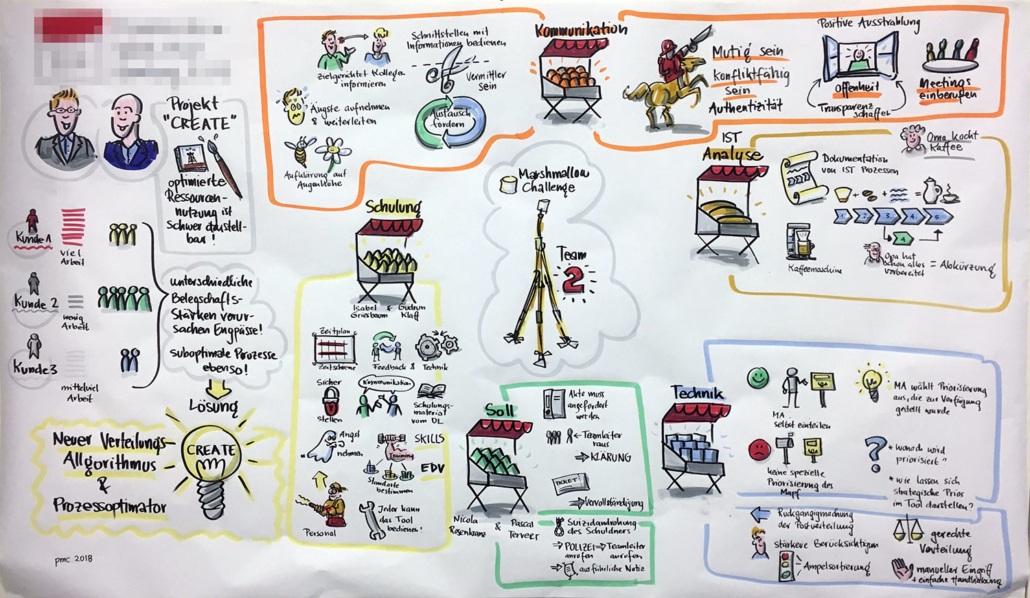 Projekt
"CREATE"
optimierte
Ressourcen-
nutzung ist
Schwer darstell-
bar!
Kunde 1
viel
Arbeit
Kunde 2
wenig
Arbeit
Kunde 3
mittelviel
Arbeit
unterschiedliche
Belegschafts-
Stärken verur-
sachen Engpässe!
suboptimale Prozesse
ebenso!
Lösung
CREATE
Neuer Verteilungs-
Algorithmus
&
Prozessoptimator
pmc 2018
Kommunikation
zielgerichtet Kollegen
informieren
Schnittstellen mit
Informationen bedienen
Vermittler
sein
Ängste aufnehmen
& weiterleiten
Austausch
fördern
Aufklärung auf
Augenhöhe
Mutig sein
Konfliktfähig
sein
Authentizität
Positive Ausstrahlung
Offenheit
Transparenz
schaffen
Meetings
einberufen
IST
Analyse
Oma kocht
Kaffee
Dokumentation
von IST Prozessen
1 2 3 4 5
4
Kaffeemaschine
Opa hat
schon alles
vorbereitet
= Abkürzung
Marshmallow
Challenge
Team
2
Schulung
Isabel & Gudrun
Zeitplan
Zeitschiene
Feedback &
Technik
Sicher
stellen
Kommunikation
Schulungs-
material
vom DL
Angst
nehmen
Training
SKILLS
EDV
Standorte
bestimmen
Personal
Jeder kann
das Tool
bedienen!
Soll
Nicola & Pascal
Akte muss
angefordert
werden
Teamleiter
raus
KLÄRUNG
TICKET!
Vervollständigung
Suizidandrohung
des Schuldners
POLIZEI Teamleiter
anrufen anrufen
ausführliche Notiz
Technik
MA
selbst einteilen
MA wählt Priorisierung
aus, die zur Verfügung
gestellt wurde
keine spezielle
Priorisierung des
?
* wonach wird
priorisiert?
* wie lassen sich
strategische Prios
im Tool darstellen?
Rückgängigmachung
der Postverteilung
stärkere Berücksichtigung
Ampelsortierung
gerechte
Verteilung
manueller Eingriff
+ einfache Handhabung